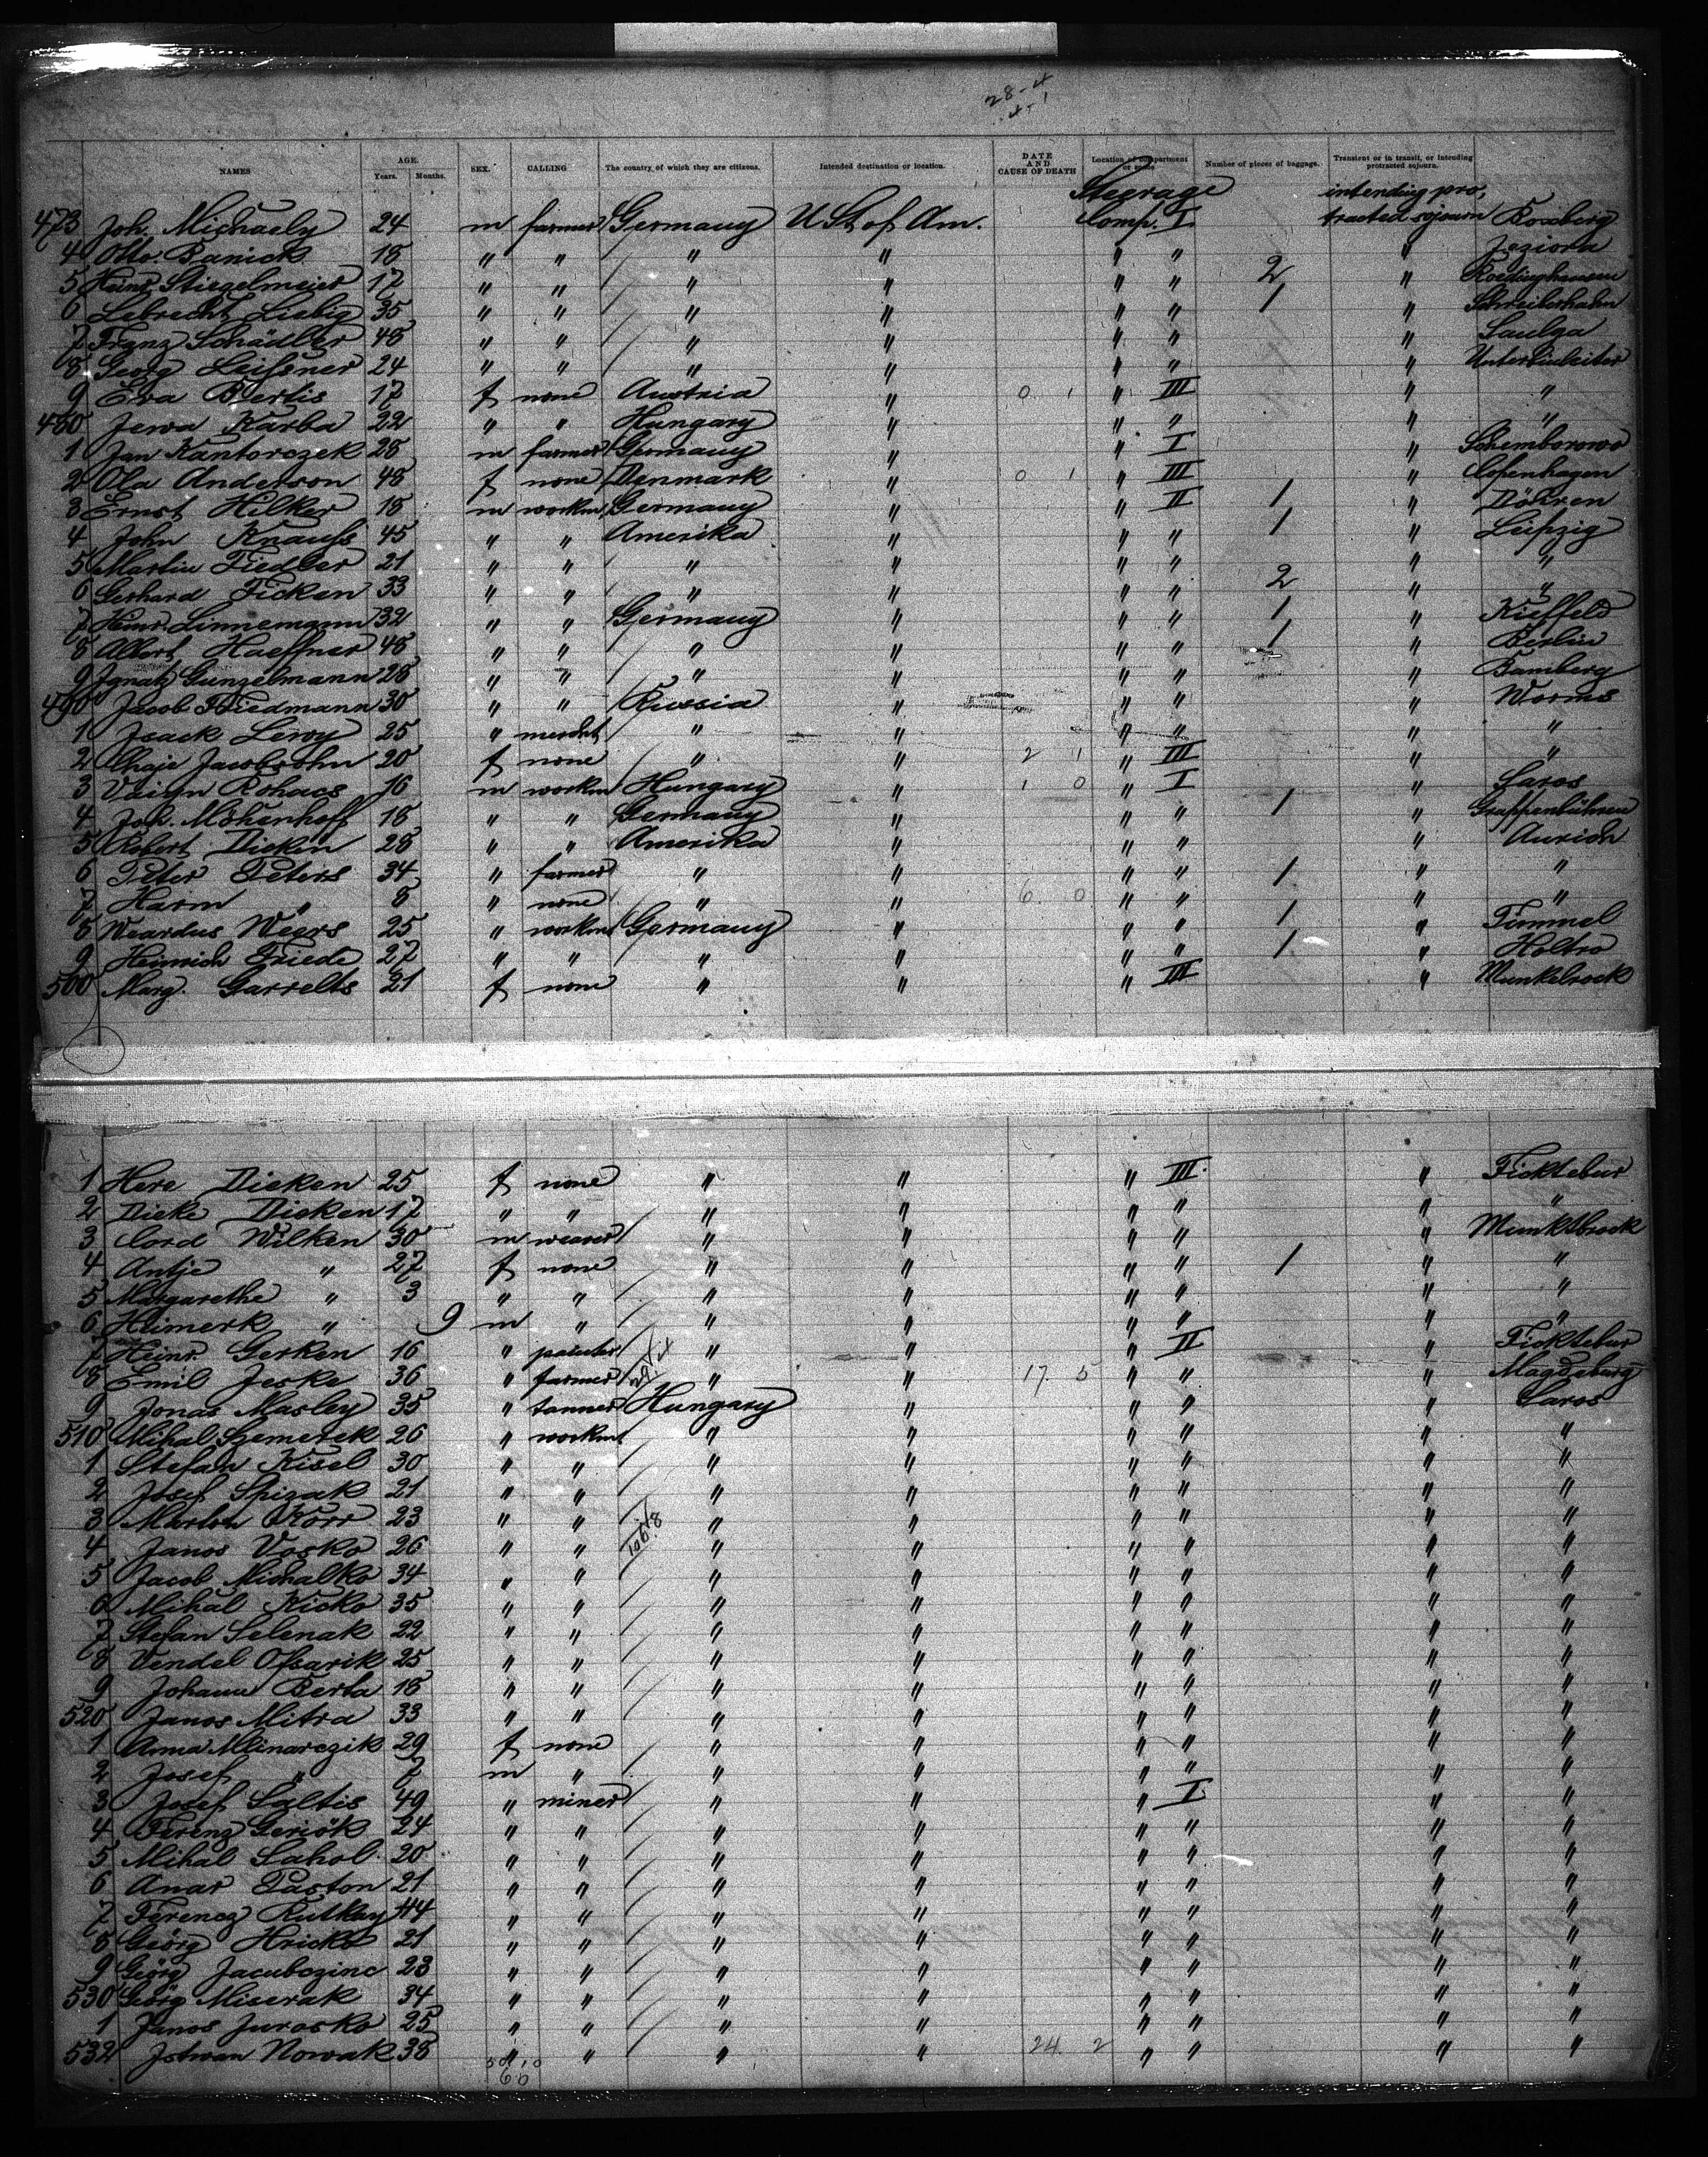 28-4
4-1
NAMES AGE. Years. Months. SEX. CALLING The country of which they are citizens. Intended destination or location. DATE AND CAUSE OF DEATH Location of compartment or space Number of pieces of baggage. Transient or in transit, or intending protracted sojourn.
Steerage intending pro,
473 Joh. Michaely 24 m farmer Germany U St of Am. Comp. I tracted sojourn Boxberg
4 Otto Banick 18 " " " " " " " Jeziora
5 Heinr. Stiegelmeier 17 " " " " " " 2 " Roedinghausen
6 Lebrecht Liebig 35 " " " " " " 1 " Schreiberhahn
7 Franz Schädler 48 " " " " " " " Saulga
8 Georg Leißner 24 " " " " " " "
9 Eva Bertis 17 f none Austria " 0 1 " III " "
480 Jewa Karba 22 " " Hungary " " " " "
1 Jan Kantorczek 28 m farmer Germany " " I "
2 Ola Anderson 48 f none Denmark " 0 1 " III " Copenhagen
3 Ernst Hilker 18 m workm Germany " " II 1 " Döhren
4 John Knauß 45 " " Amerika " " " 1 " Leipzig
5 Martin Fiedler 21 " " " " " " " "
6 Gerhard Ficken 33 " " " " " " 2 " "
7 Heinr. Linnemann 32 " " Germany " " " 1 " Kieffeld
8 Albert Haeffner 48 " " " " " " 1 " Berlin
9 Ignatz Gunzelmann 28 " " " " " " " Bamberg
490 Jacob Friedmann 30 " " Russia " " " " Worms
1 Isack Leroy 25 " mercht " " " " " "
2 Chaje Jacobsohn 20 f none " " 2 1 " III " "
3 Rohacs 16 m workm Hungary " 1 0 " I " Saros
4 Joh. Möhenhoff 18 " " Germany " " " 1 "
5 Robert Dieken 28 " " Amerika " " " " Aurich
6 Peter Peters 34 " farmer " " " " 1 " "
7 Harm " 8 " none " " 6 0 " " " "
8 Weardus Weers 25 " workm Germany " " " 1 " Timmel
9 Heinrich Friede 27 " " " " " " 1 " Holtro
500 Marg. Garrelts 21 f none " " " III " Munkelrock
1 Here Dieken 25 f none " " " III " Ficktebur
2 Dieke Dieken 17 " " " " " " " "
3 Cord Wilken 30 m weaver " " " " " Munkebrock
4 Antje " 27 f none " " " " 1 " "
5 Margarethe " 3 " " " " " " " "
6 Heimerk " 9 m " " " " " " "
7 Heinr. Gerken 16 " painter " " " II " Ficktebur
8 Emil Jeske 36 " farmer 29/4 " " 17 5 " " " Magdeburg
9 Jonas Masley 35 " tanner Hungary " " " " Saros
510 Mihal Szemerek 26 " workm " " " " " "
1 Stefan Kisel 30 " " " " " " " "
2 Josef Spizak 21 " " " " " " " "
3 Marton Korr 23 " " " " " " " "
4 Janos Vasko 26 " " " " " " " "
5 Jacob Michalko 34 " " " " " " " "
6 Mihal Kicko 35 " " " " " " " "
7 Stefan Selenak 22 " " " " " " " "
8 Vendel Oßarik 25 " " " " " " " "
9 Johann Berta 18 " " " " " " " "
520 Janos Mitra 33 " " " " " " " "
1 Anna Mlinarczik 29 f none " " " " " "
2 Josef " 7 m " " " " " " "
3 Josef Saltis 49 " miner " " " I " "
4 Ferenz Geriök 24 " " " " " " " "
5 Mihal Sahol 20 " " " " " " " "
6 Anar Paston 21 " " " " " " " "
7 Ferencz Rutkay 44 " " " " " " " "
8 Geörg Hricko 21 " " " " " " " "
9 Geörg Jacubczine 23 " " " " " " " "
530 Geörg Miserak 34 " " " " " " " "
1 Janos Jurasko 25 " " " " " " " "
532 Istwan Nowak 38 " " " " 24 2 " " " "